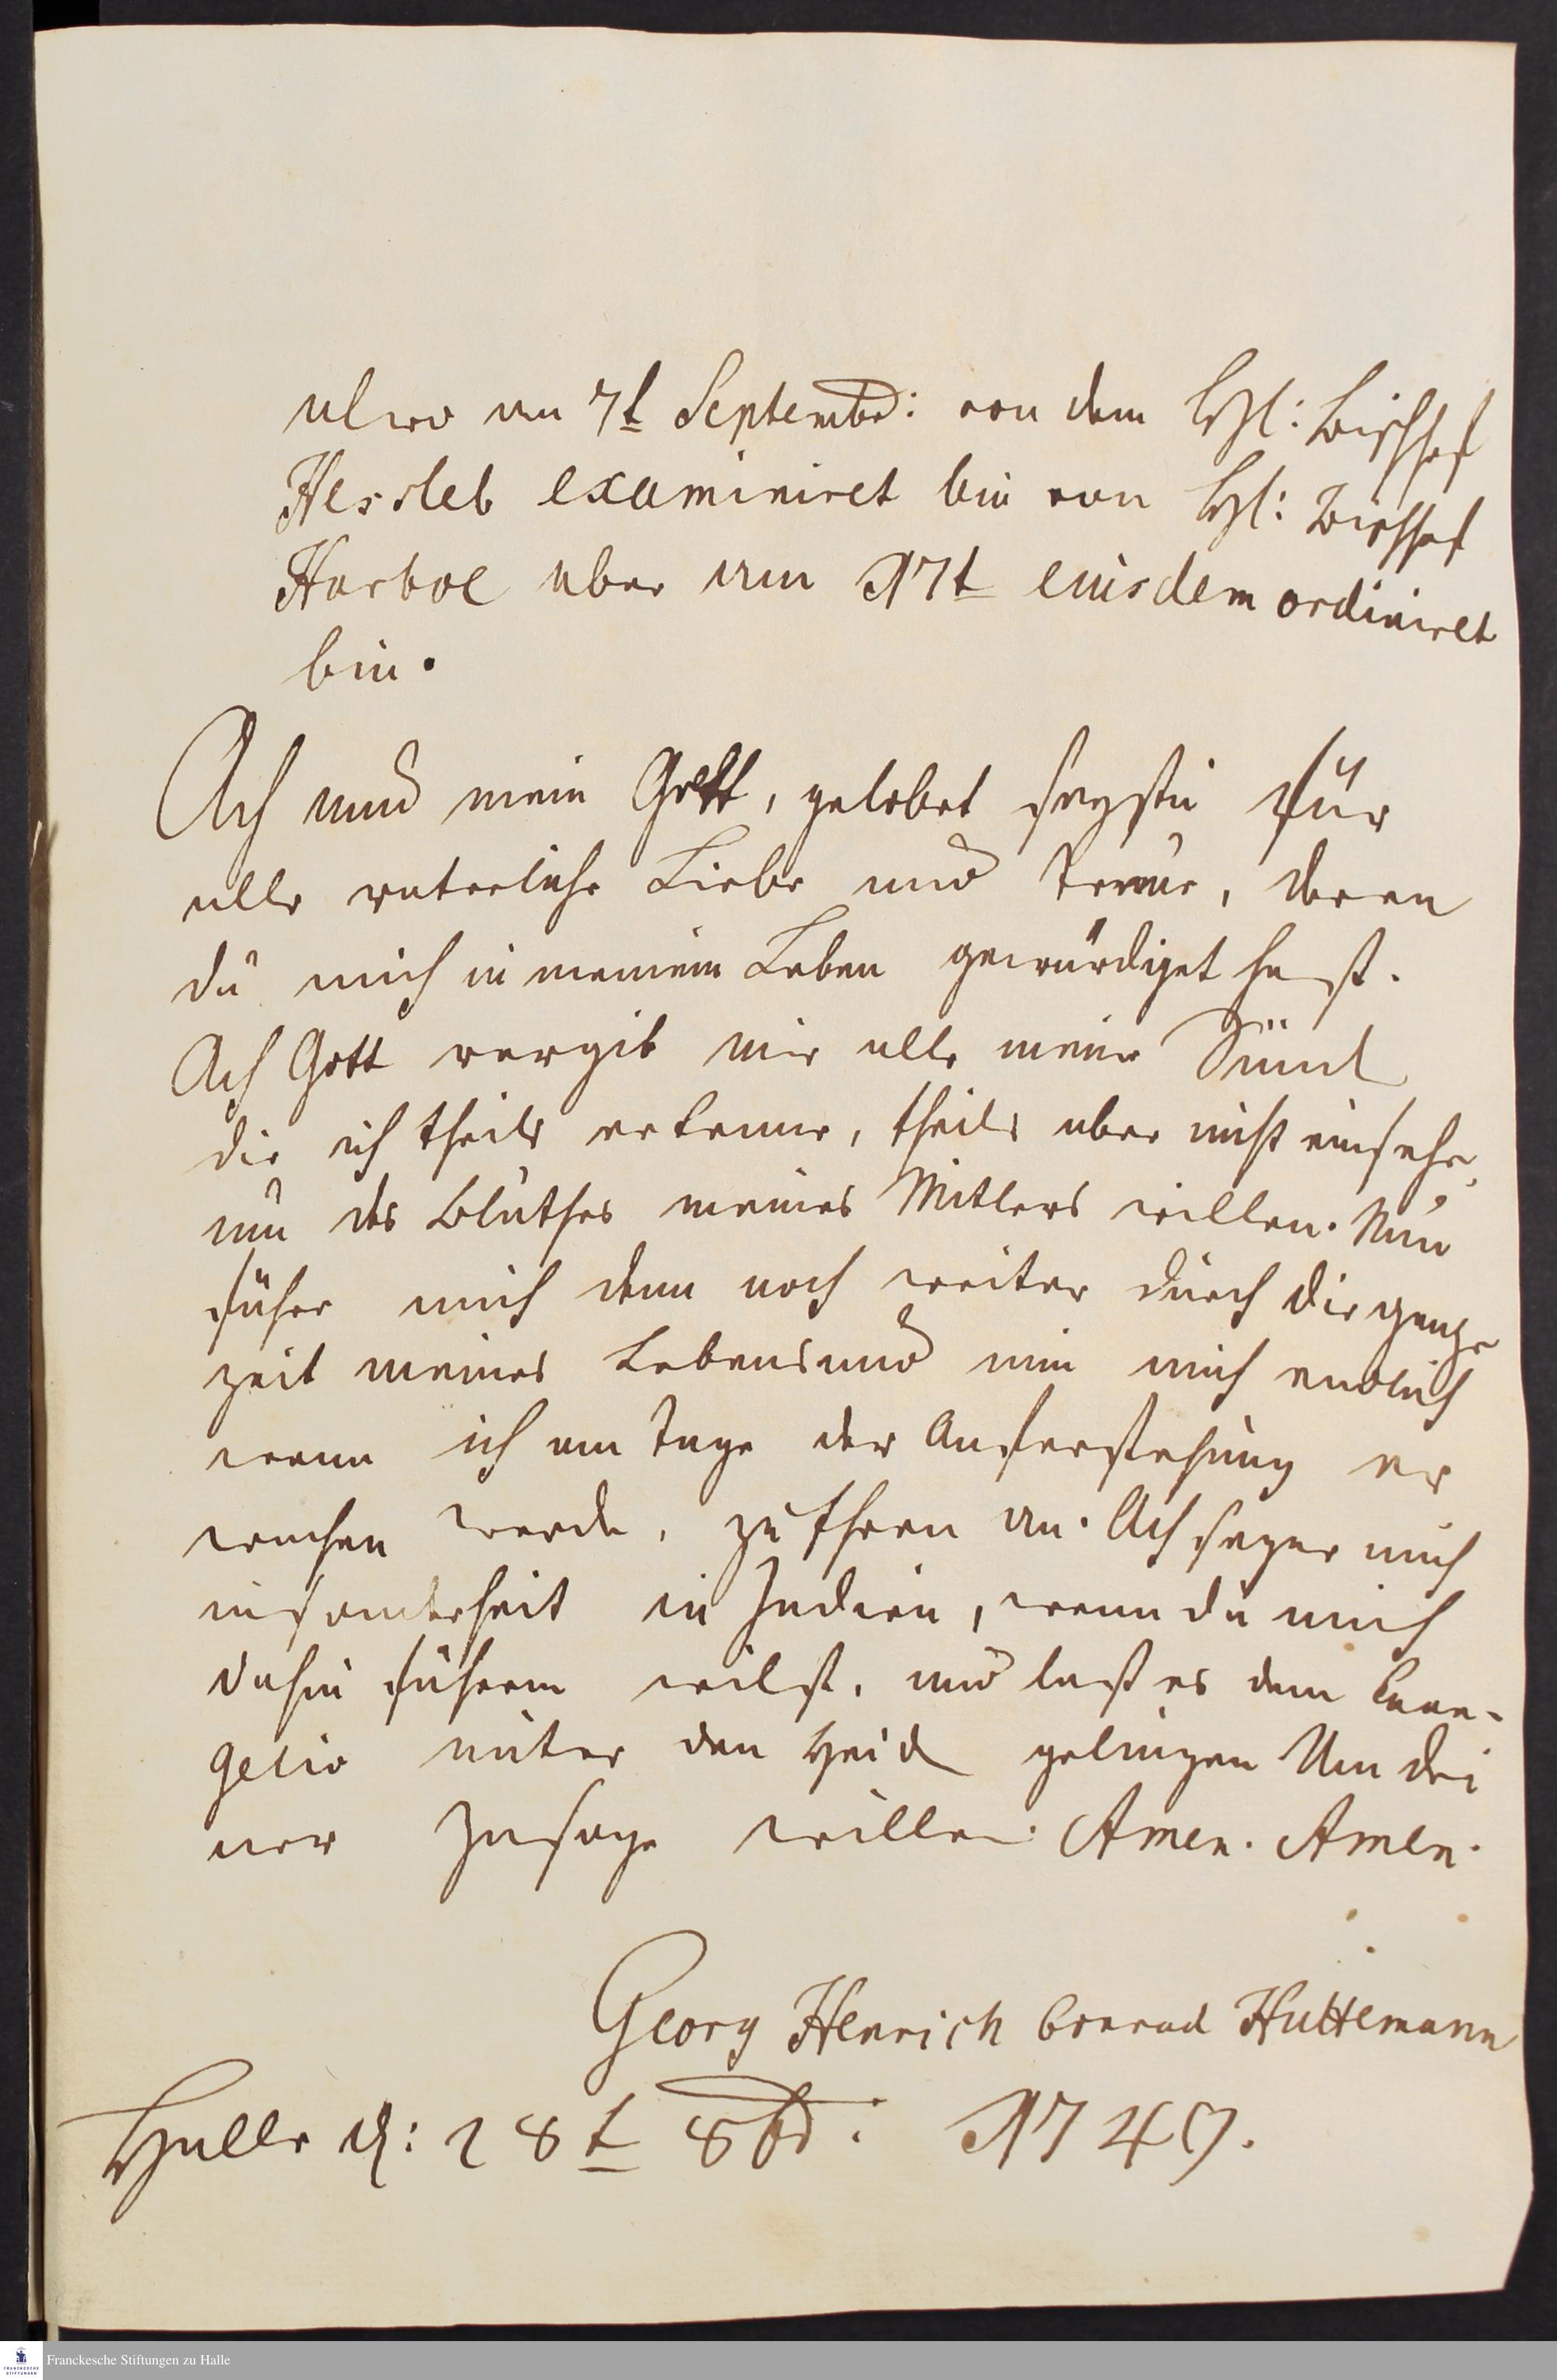 alwo am 7t Septembr: von dem HH: Bischhof
Hersleb examiniret bin von HH: Bischhof
Harboe aber am 17t eiusdem ordiniret
bin.
Ach nun mein Gott, gelobet seystu für
alle vaterliche Liebe und Treue, deren
du mich in meinem Leben gewürdiget hast.
Ach Gott vergib mir alle meine Sünd
die ich theils erkenne, theils aber nicht einsehe,
um des Bluthes meines Mitlers willen. Nun
führe mich denn noch weiter durch die gantze
zeit meines Lebens und nim mich endlich
wenn ich am Tage der Auferstehung er
wachen werde, zu Ehren an. Ach segne mich
insonderheit in Indien, wenn du mich
dahin führen wilst, und lasst es dem Evan-
gelio unter den Heiden gelingen Um dei
ner Zusage willen. Amen. Amen.
Georg Henrich Conrad Huttemann
Halle d: 28t 8br: 1749.
Franckesche Stiftungen zu Halle
FRANCKESCHE
STIFTUNGEN